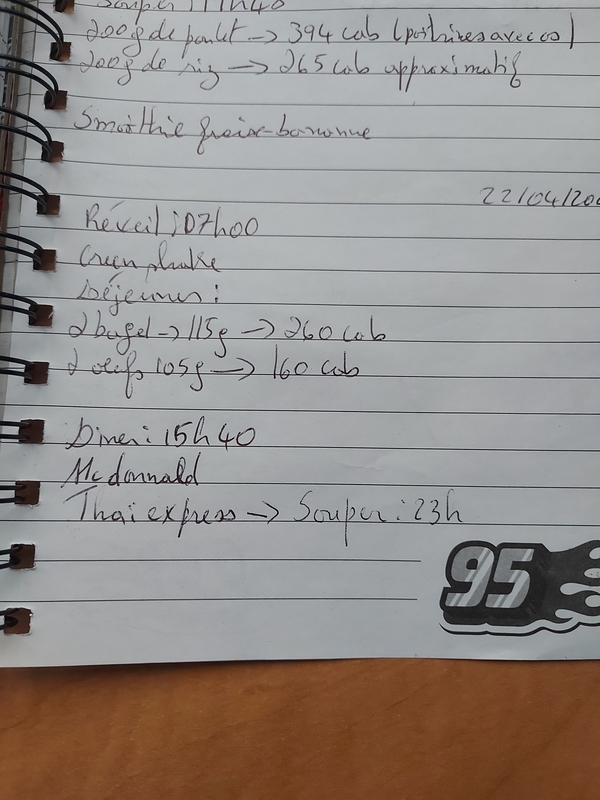 Souper : 17h40
200g de poulet → 394 cal (poitrines avec os)
200g de riz → 265 cal approximatif
Smoothie fraise-bananne
22/04/20
Réveil : 07h00
Green shake
Déjeuner :
2 bagel → 115g → 260 cal
2 oeufs 105g → 160 cal
Diner : 15h40
Mcdonnald
Thai express → Souper : 23h
95